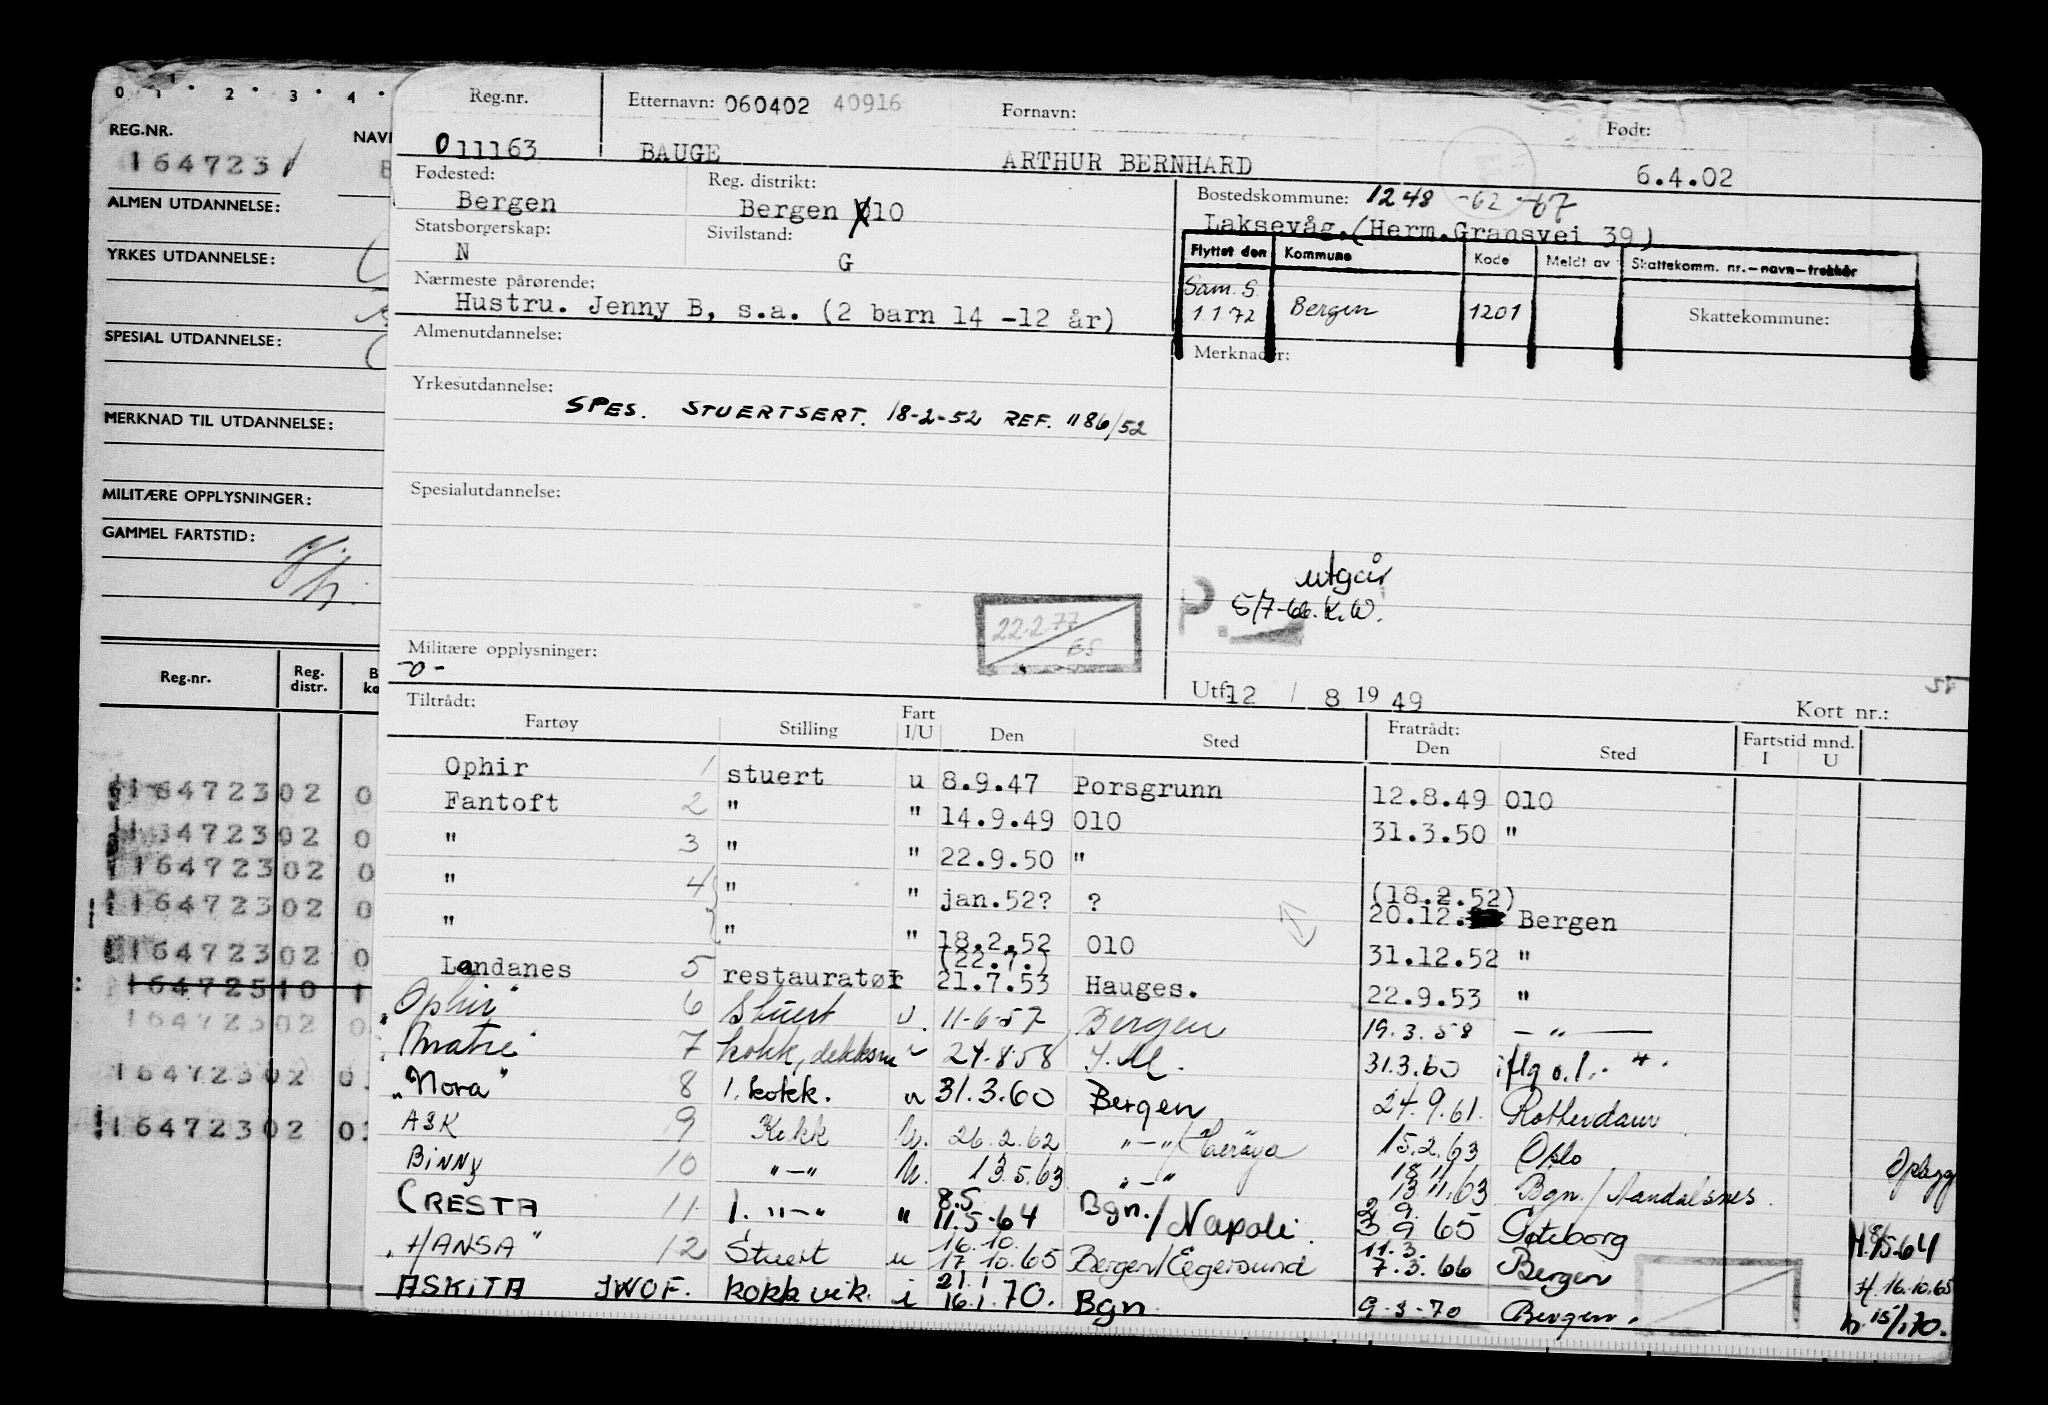 0 1 2 3 4
REG.NR. NAV
1647231
ALMEN UTDANNELSE:
YRKES UTDANNELSE:
SPESIAL UTDANNELSE:
MERKNAD TIL UTDANNELSE:
MILITÆRE OPPLYSNINGER:
GAMMEL FARTSTID:
Reg.nr. Reg. distr.
16472302 0
16472302 0
16472302 0
16472302 0
16472302 0
16472302 0
16472302 0
16472302 0
Reg.nr. Etternavn: 060402 40916 Fornavn: Født:
011163 BAUGE ARTHUR BERNHARD 6.4.02
Fødested: Reg. distrikt: Bostedskommune: 1248 -62 -67
Bergen Bergen 010 Laksevåg.(Herm.Gransvei 39)
Statsborgerskap: Sivilstand:
N G
Flyttet den Kommune Kode Meldt av Skattekomm. nr.-navn-trekkår
Sam. S. 1 1 72 Bergen 1201 Skattekommune:
Nærmeste pårørende:
Hustru. Jenny B, s.a. (2 barn 14 -12 år)
Almenutdannelse: Merknader:
Yrkesutdannelse:
SPES. STUERTSERT. 18-2-52 REF. 1186/52
Spesialutdannelse:
utgår
5/7-66. K.W.
22.2.77
ES
Militære opplysninger:
-0-
Utf. 12 / 8 19 49 Kort nr.:
Tiltrådt: Fratrådt: Fartstid mnd.
Fartøy Stilling Fart I/U Den Sted Den Sted I U
Ophir 1 stuert u 8.9.47 Porsgrunn 12.8.49 010
Fantoft 2 " " 14.9.49 010 31.3.50 "
" 3 " " 22.9.50 "
" 4 " " jan.52? ? (18.2.52) 20.12. Bergen
" " " 18.2.52 010 31.12.52 "
(22.7.)
Landanes 5 restauratør 21.7.53 Hauges. 22.9.53 "
"Ophir" 6 Stuert u. 11-6-57 Bergen 19.3.58 - " -
7 kokk, 24.8.58 31.3.60
"Nora" 8 1. kokk. u 31.3.60 Bergen 24.9.61. Rotterdam
ASK 9 Kokk U. 26.2.62 "-"/Herøya 15.2.63 Oslo
BiNNy 10 "-" U. 13.5.63 "-" 18 11 13.11.63 Bgn./Aandalsnes. Opplagg
CRESTA 11 1. "-" " 8.5 11.5-64 Bgn./Napoli. 2 9. 3 9 65 Gøteborg H.8/5-64
"HANSA" 12 Stuert u 16.10. 17.10.65 Bergen/Egersund 11.3. 7.3.66 Bergen H. 16.10.65
ASKITA JWOF. kokk vik. i 21.1 16.1.70. Bgn 9-3-70 Bergen. h. 15/1 70.